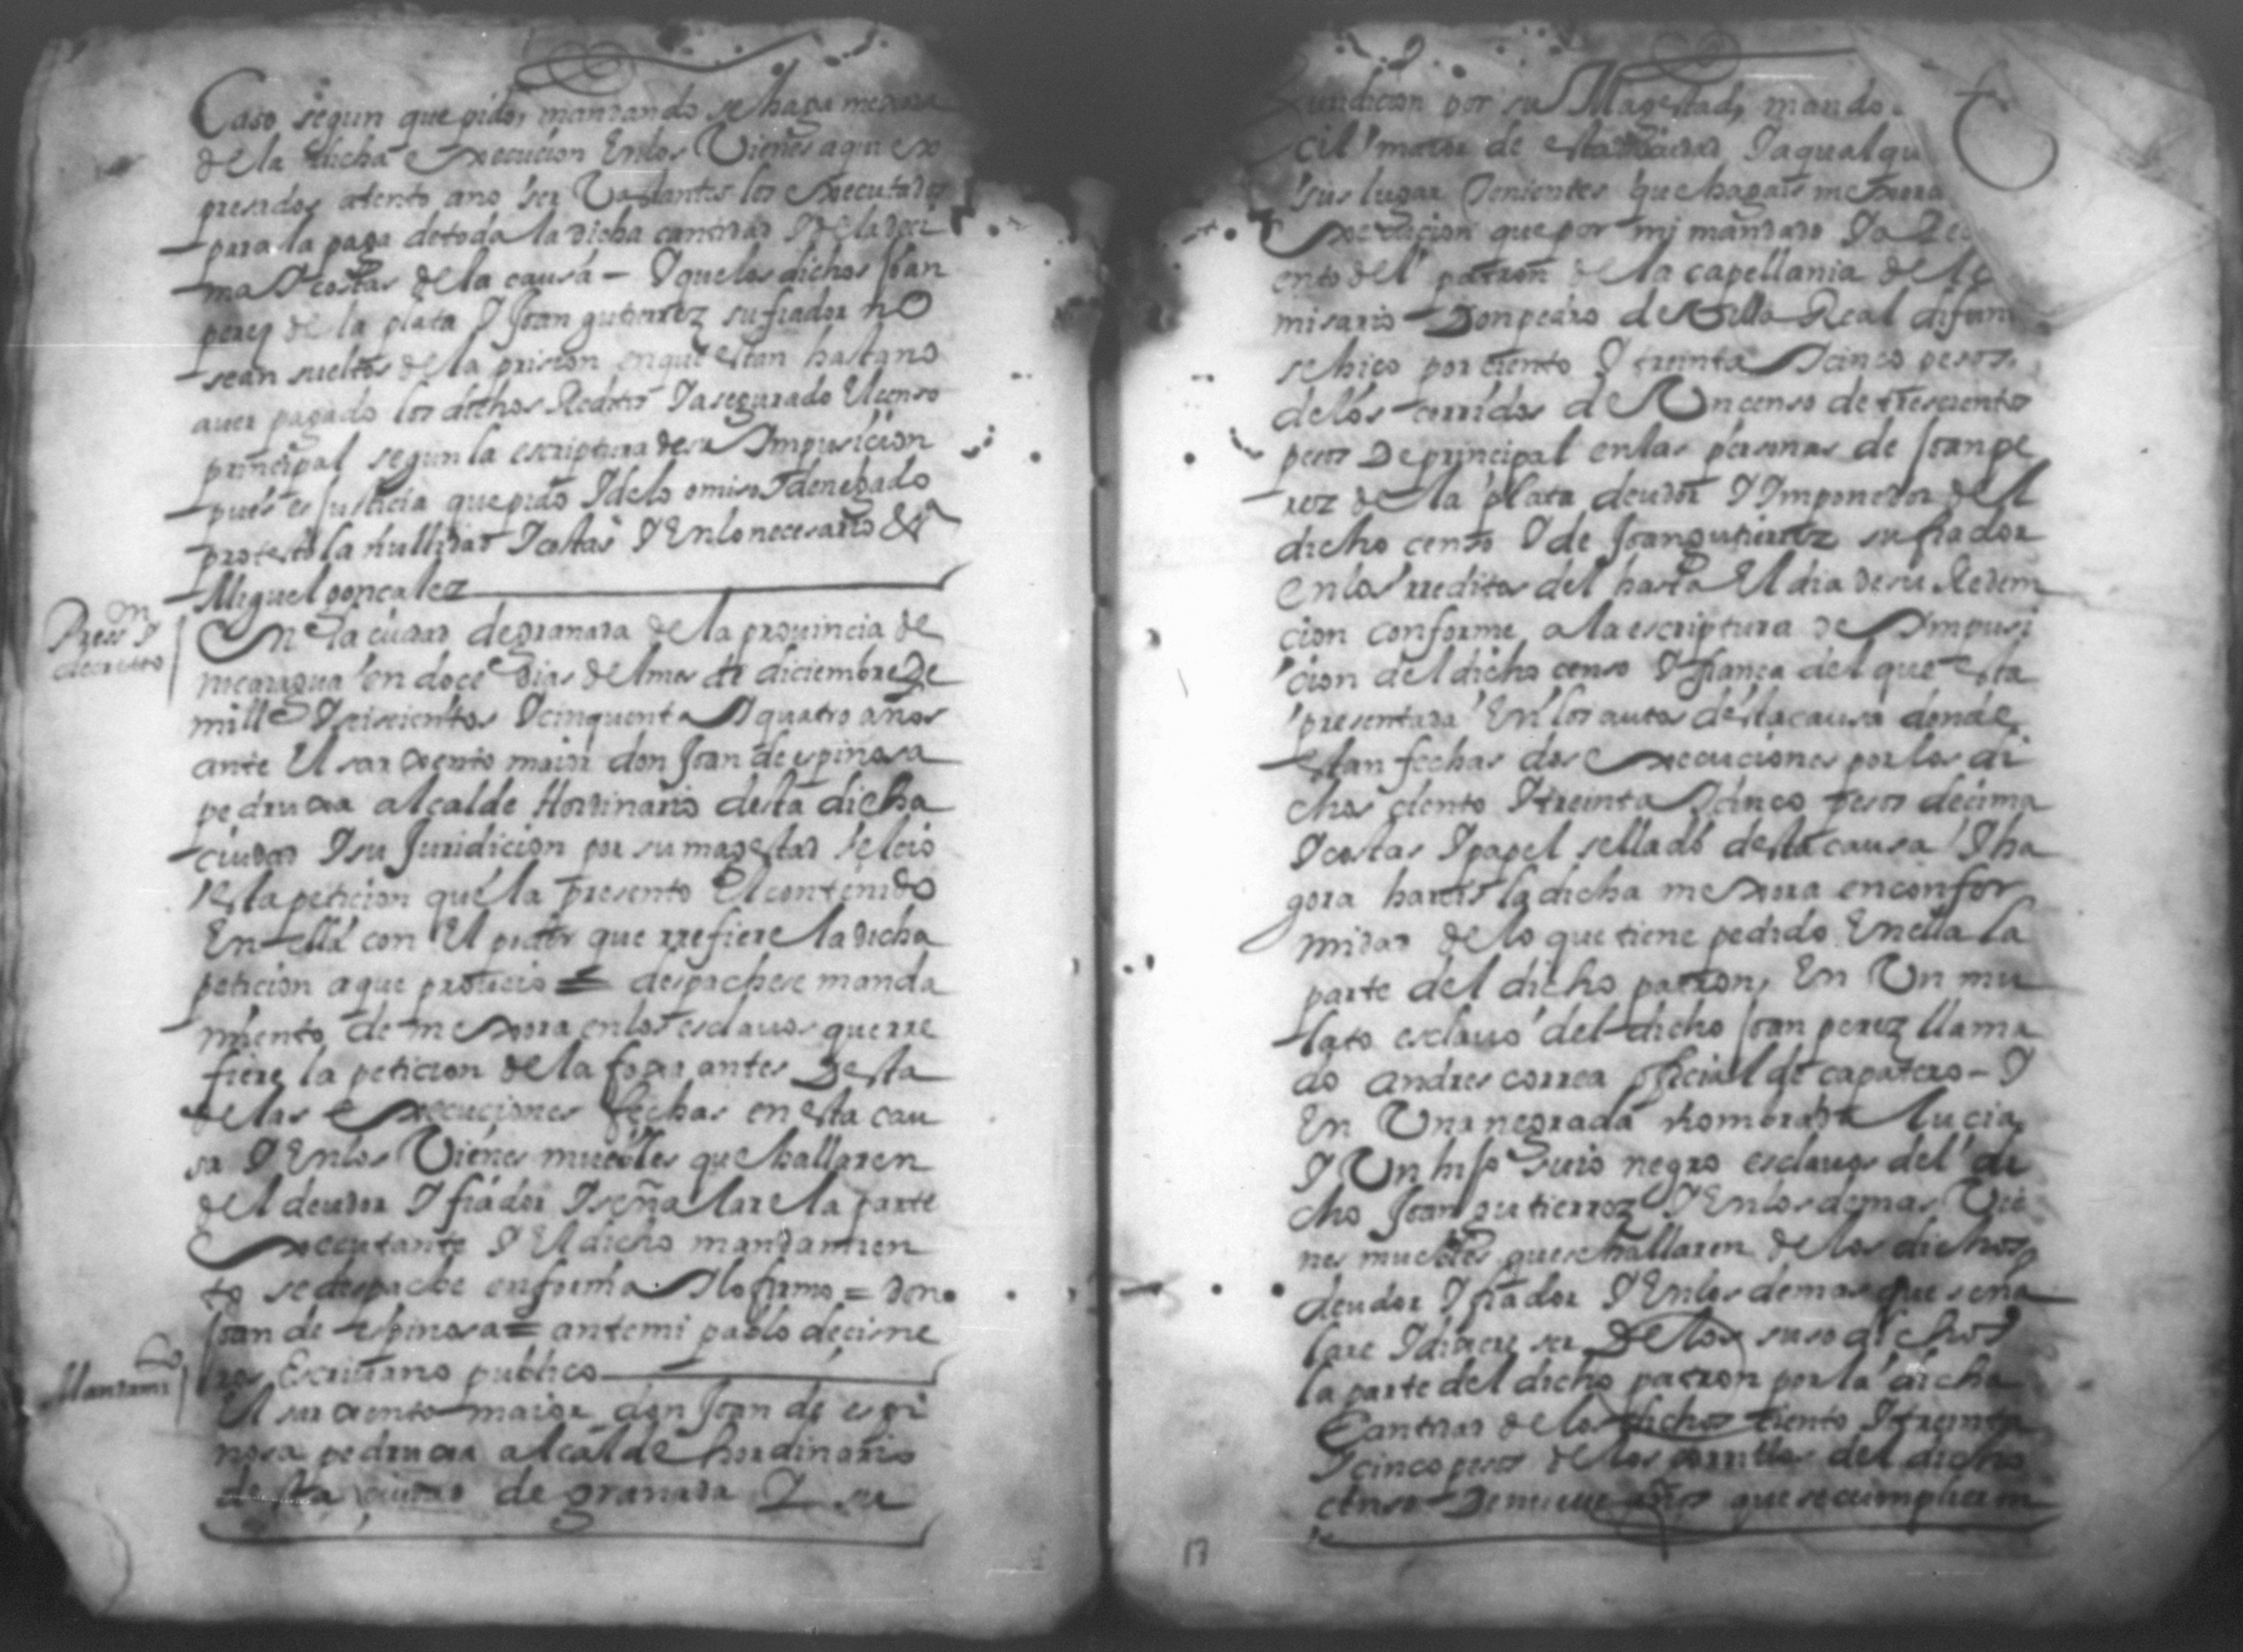 Caso segun que pido, mandando se haga mexora
de la dicha execucion En los Vienes aqui ex
presados atento a no ser Vastantes los executados
para la paga de toda la dicha cantidad I de la deci
ma I costas de la causa – I que los dichos Joan
perez de la plata I Joan gutierrez su fiador no
sean sueltos de la prision en que estan hasta no
auer pagado los dichos Reditos I asegurado El censo
principal segun la escriptura de su Imposicion
pues es justicia que pido I de lo omiso I denegado
protesto la nullidad I costas I En lo necesario &ª
Miguel gonçalez
Presⁿ I
decreto
En la ciudad de granada de la prouincia de
nicaragua en doce dias del mes de diciembre de
mill I seiscientos I cinquenta I quatro años
ante El sarxento maior don Joan de espinosa
pedruxa alcalde Hordinario desta dicha
ciudad I su Juridicion por su magestad se leió
esta peticion que la presento El contenido
En ella con El poder que rrefiere la dicha
peticion a que proueió = despachese manda
miento de mexora en los esclauos que rre
fiere la peticion de la foxa antes desta
de las execuciones fechas en esta cau
sa I En los Vienes muebles que hallaren
del deudor I fiador I señalare la parte
Executante I El dicho mandamien
to se despache en forma I lo firmo = don
Joan de espinosa = ante mi pablo de cisne
ros Escriuano publico
Mandamᵗᵒ
El sarxento maior don Joan de espi
nosa pedruxa alcalde hordinario
desta ciudad de granada I su
Juridicion por su Magestad, mando
cil maior de esta ciudad I a qualqu
sus lugar tenientes que hagais mexora
Execucion que por mi mandado I a Pe
ento del patron de la capellania del
misario Don pedro de Vello Real difun
se hiço por ciento I treinta I cinco pesos
de los corridos de Vn censo de trescientos
pesos De principal en las personas de Joan pe
rez de la plata deudor I Imponedor del
dicho censo I de Joan gutierrez su fiador
en los rreditos del hasta El dia de su Redem
cion conforme a la escriptura de Imposi
cion del dicho censo I fiança del que esta
presentada En los autos desta causa donde
estan fechas dos execuciones por los di
chos ciento I treinta I cinco pesos decima
I costas I papel sellado desta causa I ha
gora hareis la dicha mexora en confor
midad de lo que tiene pedido En ella la
parte del dicho patron, En Vn mu
lato esclauo del dicho Joan perez llama
do andres correa oficial de çapatero – I
En Vna negra da nombrada lucia
I Vn hijo suio negro esclauos del di
cho Joan gutierrez I En los demas Vie
nes muebles que se hallaren de los dichos
deudor I fiador I En los demas que seña
lare I dixere ser De los suso dichos
la parte del dicho patron por la dicha
Cantidad de los dichos ciento I treinta
I cinco pesos de los corridos del dicho
censo De nueue años que se cumplieron
17